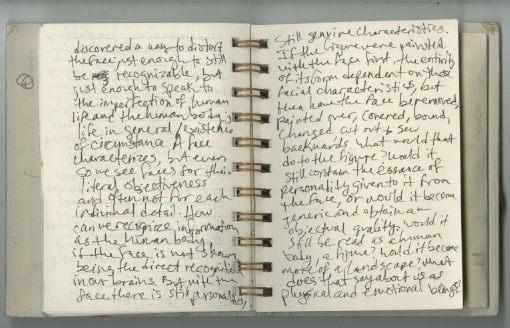 discovered a way to distort
the face just enough to still
be recognizable, but
just enough to speak to
the imperfection of human
life and the human body &
life in general/existence
of circumstance. A face
characterizes, but even
so we see faces for their
literal objectiveness
and often not for each
individual detail. How
can we recognize information
as the human body
if the face is not shown
being the direct recognition
in our brains. But with the
face there is still personality,
still genuine characteristics.
If the figure were painted
with the face first, the entirety
of its form dependent on those
facial characteristics, but
then have the face be removed,
painted over, covered, bound,
changed cut out & sew
backwards what would that
do to the figure? Would it
still contain the essance of
personality given to it from
the face, or would it become
generic and obtain an
objectual quality. Would it
still be read as a human
body, a figure? Would it become
more of a landscape? What
does that say about us as
physical and emotional beings?